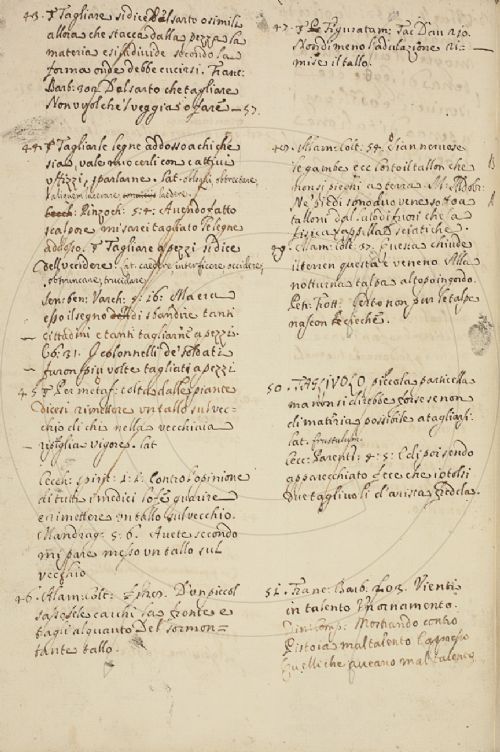 43. Tagliare si dice del sarto o simili
allora che stacca dalla pezza la
materia e si divide secondo la
forma onde debbe cucirsi. Franc:
Barb: 309. Del sarto che tagliare
Non vuol che'l veggia'l fare — 57.
44. Tagliarle legne addosso a chi che
sia, vale nuocerli con cattivi
uffizzi, sparlarne. lat.
Pinzoch: 5: 4: Avendo fatto
scalpore mi sarei tagliato le legne
addosso. Tagliare a pezzi si dice
dell'uccidere. lat. caedere interficere occidere,
obtruncare, trucidare.
Sen: ben: Varch: 5: 16: Ma era
esso il segno di sbandire tanti
cittadini e tanti tagliarne a pezzi.
6: 31. I colonnelli de' soldati
furon più volte tagliati a pezzi
45. Per metaf: tolta dalle piante
dicesi rimettere un tallo sul vec-
chio di chi nella vecchiaia
ripiglia vigore. lat
Cecch: spirit: 1: 1: Contro l'opinione
di tutti i medici lo fe guarire
e rimettere un tallo sul vecchio.
Mandrag: 5: 6. Avete secondo
mi pare messo un tallo sul
vecchio
46. Alam: Colt: D'un piccol
cacchi la fronte e
tagli alquanto Del sormon-
tante tallo.
47. Figuratam: Tac: Dav:
Nondimeno l'adulazione ri-
mise il tallo.
48. Alam: Colt: 54. Sian nervose
le gambe e corto il tallon che
non si pieghi a terra
Ne' piedi sono due vene sotto a
talloni dal lato di fuori che la
fisica l'appella sciatiche.
49. Alam: Colt: 37. Questa chiude
il terren questa è veneno Alla
notturna talpa al topo ingordo.
Petr: Certo non pur le talpe
nascon cieche.
50. TAGLIVOLO piccola particella
ma non si direbbe forse se non
di materia possibile a tagliarsi.
lat. frustulum.
Cecc: Parenti: 4: 5: Ed ei poi sendo
apparecchiato fece che io tolsi
due tagliuoli d'arista fredda.
51. Franc: Barb. 203. Vienti
in talento In ornamento.
Mostrando contro
Pistoia mal talento
quelli che aveano mal talento